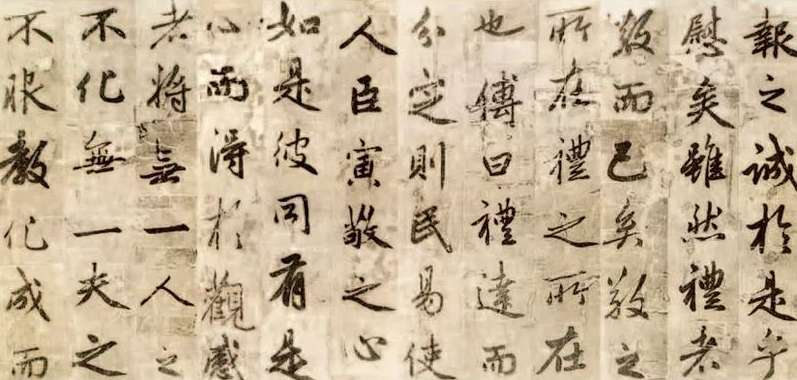 報之誠於是乎
慰矣雖然禮者
敬而已矣敬之
所在禮之所在
也傳曰禮達而
分定則民易使
人臣寅敬之心
如是彼同有是
心而得於觀感
者將無一人之
不化無一夫之
不服教化成而